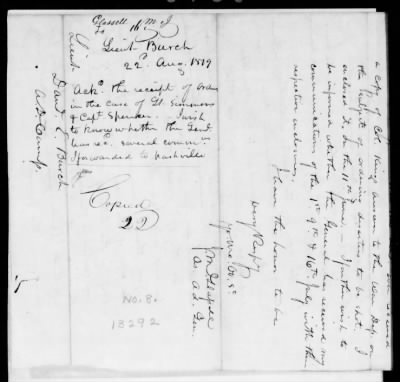 Glassell
to
Lieut. Burch
22d. Aug. 1819
Ackg. the receipt of Orders
in the case of Lt. Simmons
& Capt. Spencer. I wish
to know whether the Genl.
has recd. several commns.
forwarded to Nashville
Copied
22
Lieut.
Danl. E. Burch
A. D. Camp.
a copy of Col. King's answer to the War Dep. on
the subject of ordering deserters to be shot. I
enclosed it in the 11th June. — I further wish to
be informed whether the General has received my
communications of the 1st 9th & 16th July with their
respective enclosures.
I have the honor to be
very Respy.
yr. mo. ob. st.
J M Glassell
As. Ad. Gen.
No. 8.
13292